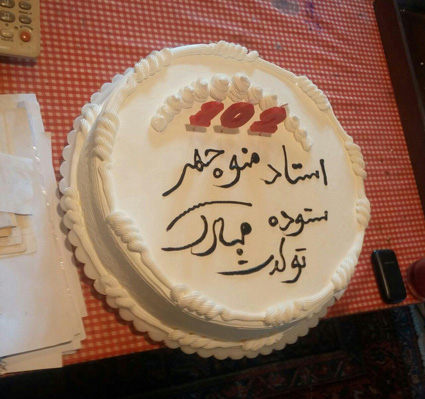 102
استاد منوچهر
ستوده مبارک
تولدت